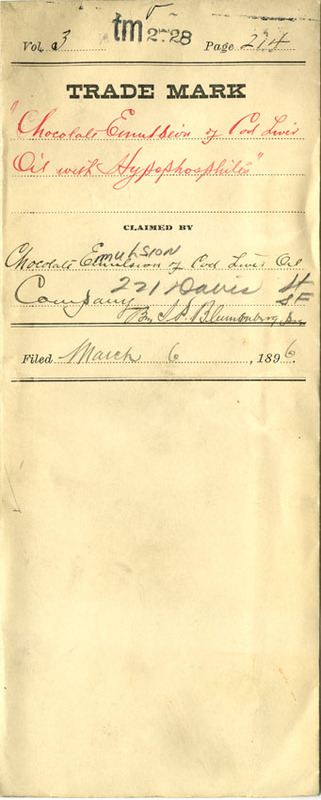 Vol. 3 tm 2728 Page 274
TRADE MARK
"Chocolate Emulsion of Cod Liver
Oil with Hypophosphites"
CLAIMED BY
Chocolate Emulsion of Cod Liver Oil
MULSION
Company 221 Davis St
SF
By J. P. Blumenberg
Filed March 6, 1896.